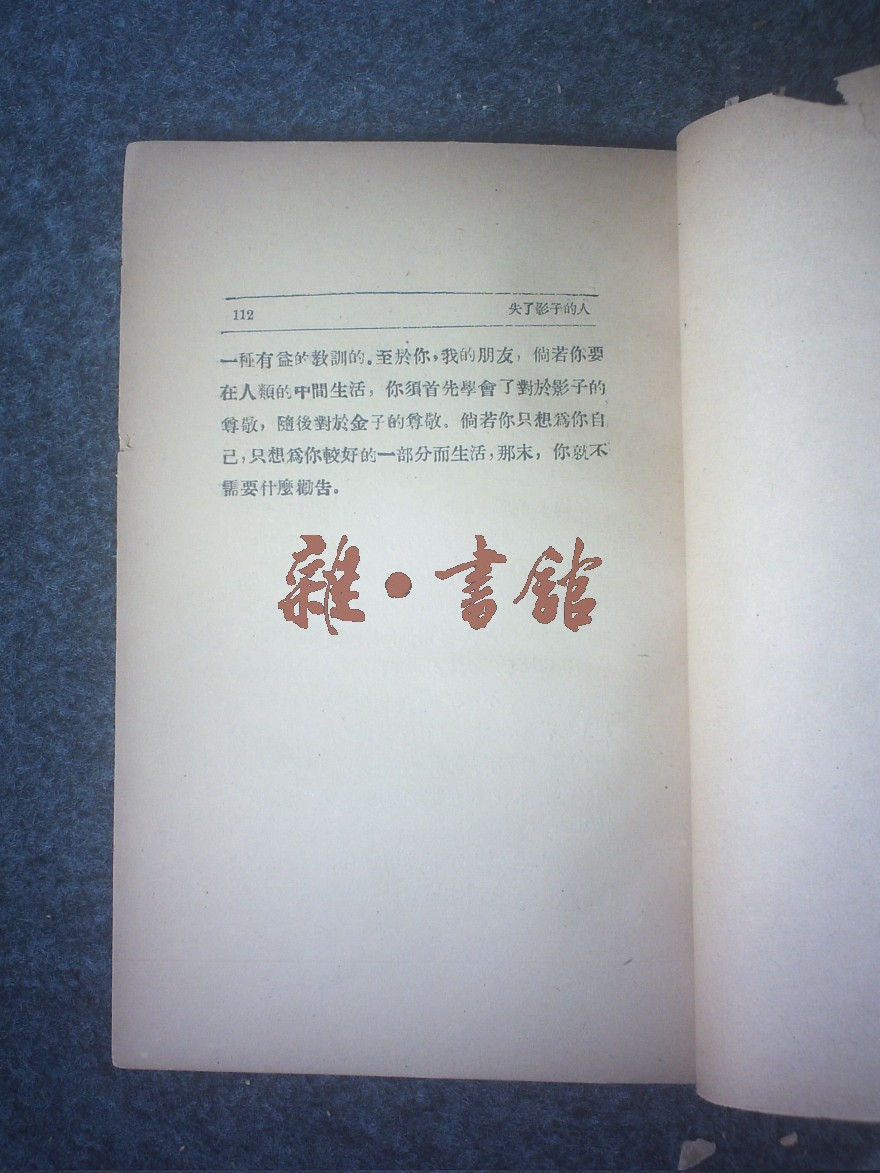 112 失了影子的人
一種有益的教訓的。至於你，我的朋友，倘若你要
在人類的中間生活，你須首先學會了對於影子的
尊敬，隨後對於金子的尊敬。倘若你只想爲你自
己，只想爲你較好的一部分而生活，那末，你就不
需要什麼勸告。
雜·書館